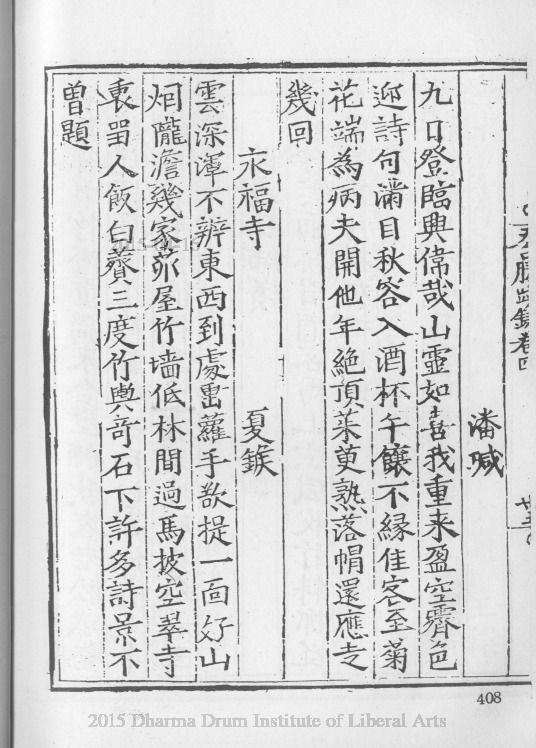 錄卷四
潘
九日登臨興偉哉山靈如喜我重来盈空霽色
迎詩句滿目秋容入酒杯午饟不縁佳客至菊
花端為病夫開他年絶頂茱萸熟落帽還應走
幾回
永福寺 夏鍭
雲深渾不辨東西到處藤蘿手欲提一面好山
烟隴澹幾家茆屋竹墻低林間過馬披空翠寺
裏畱人飯白虀三度竹輿奇石下許多詩景不
曽題
408
2015 Dharma Drum Institute of Liberal Arts